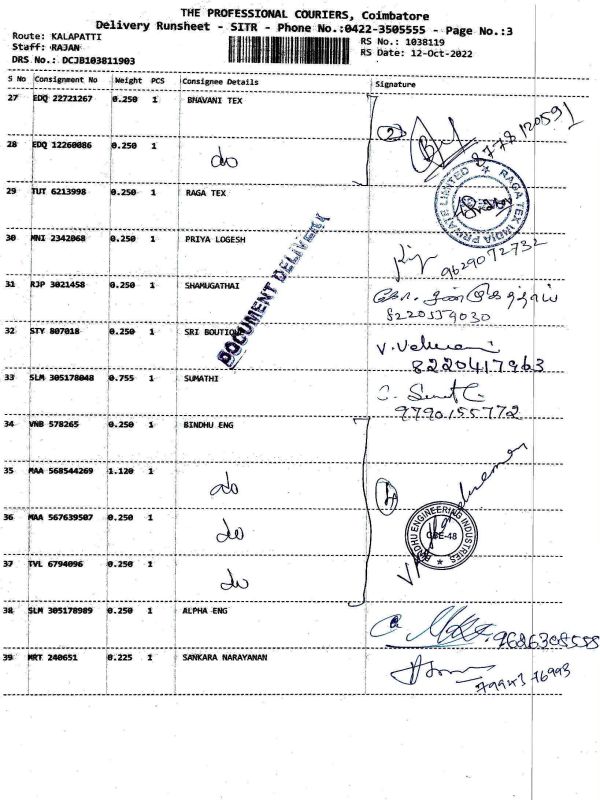 THE PROFESSIONAL COURIERS, Coimbatore
Delivery Runsheet - SITR - Phone No.:0422-3505555 - Page No.:3
Route: KALAPATTI
Staff: RAJAN
DRS No.: DCJB103811903
RS No.: 1038119
RS Date: 12-Oct-2022
S No Consignment No Weight PCS Consignee Details Signature
27 EDQ 22721267 0.250 1 BHAVANI TEX
2 87781 20591
28 EDQ 12260086 0.250 1 do
29 TUT 6213998 0.250 1 RAGA TEX
RAGA TEX INDIA PRIVATE LIMITED
30 MNI 2342068 0.250 1 PRIYA LOGESH
9629072732
31 RJP 3021458 0.250 1 SHAMUGATHAI
8220559030
32 STY 807018 0.250 1 SRI BOUTIQUE
8220417963
DOCUMENT DELIVERY
33 SLM 305178048 0.755 1 SUMATHI
9790155772
34 VNB 578265 0.250 1 BINDHU ENG
35 MAA 568544269 1.120 1 do
4
36 MAA 567639507 0.250 1 do
BINDHU ENGINEERING INDUSTRIES
CBE-48
37 TVL 6794096 0.250 1 do
38 SLM 305178989 0.250 1 ALPHA ENG
9686308558
39 MRT 240651 0.225 1 SANKARA NARAYANAN
7994376993